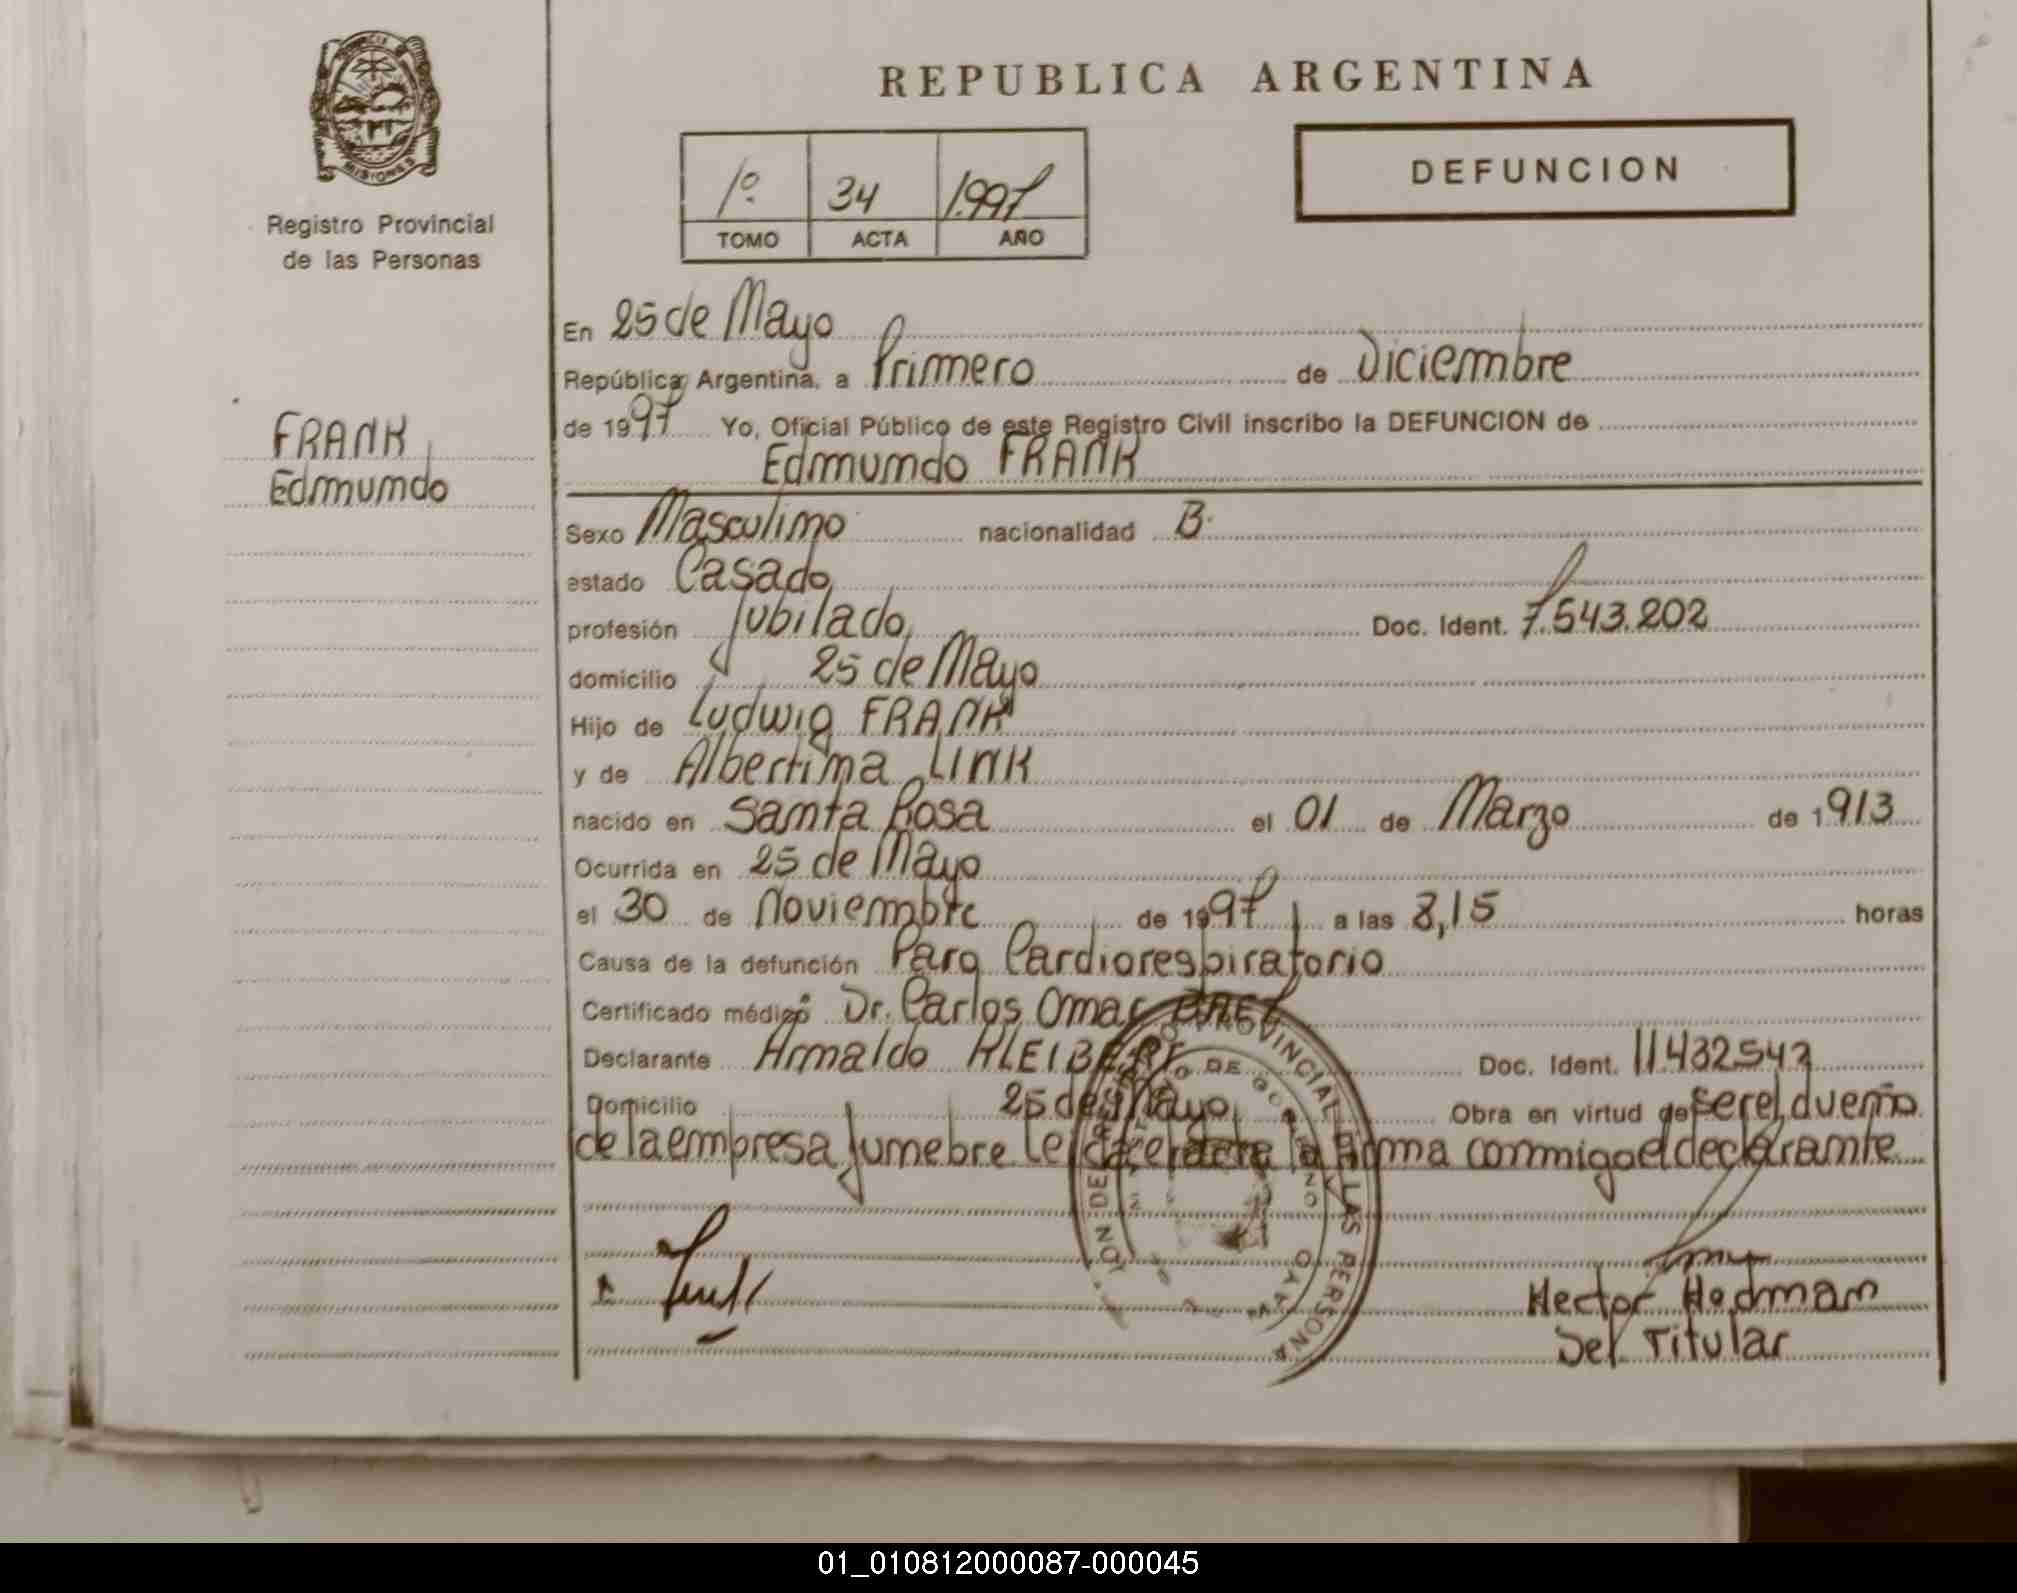 REPUBLICA ARGENTINA
DEFUNCION
MISIONES
Registro Provincial
de las Personas
1º 34 1.997
TOMO ACTA AÑO
FRANK
Edmundo
En 25 de Mayo
República Argentina, a Primero de Diciembre
de 1997 Yo, Oficial Público de este Registro Civil inscribo la DEFUNCION de
Edmundo FRANK
Sexo Masculino nacionalidad B.
estado Casado
profesión Jubilado Doc. Ident. 7.543.202
domicilio 25 de Mayo
Hijo de Ludwig FRANK
y de Albertina LINK
nacido en Santa Rosa el 01 de Marzo de 1913
Ocurrida en 25 de Mayo
el 30 de Noviembre de 1997 a las 8,15 horas
Causa de la defunción Paro Cardiorespiratorio
Certificado médico Dr. Carlos Omar
Declarante Arnaldo KLEIBERT Doc. Ident. 11.432542
Domicilio 25 de Mayo Obra en virtud de ser el dueño
de la empresa funebre Leida el acta la firma conmigo el declarante
Hector Hedman
Del. Titular